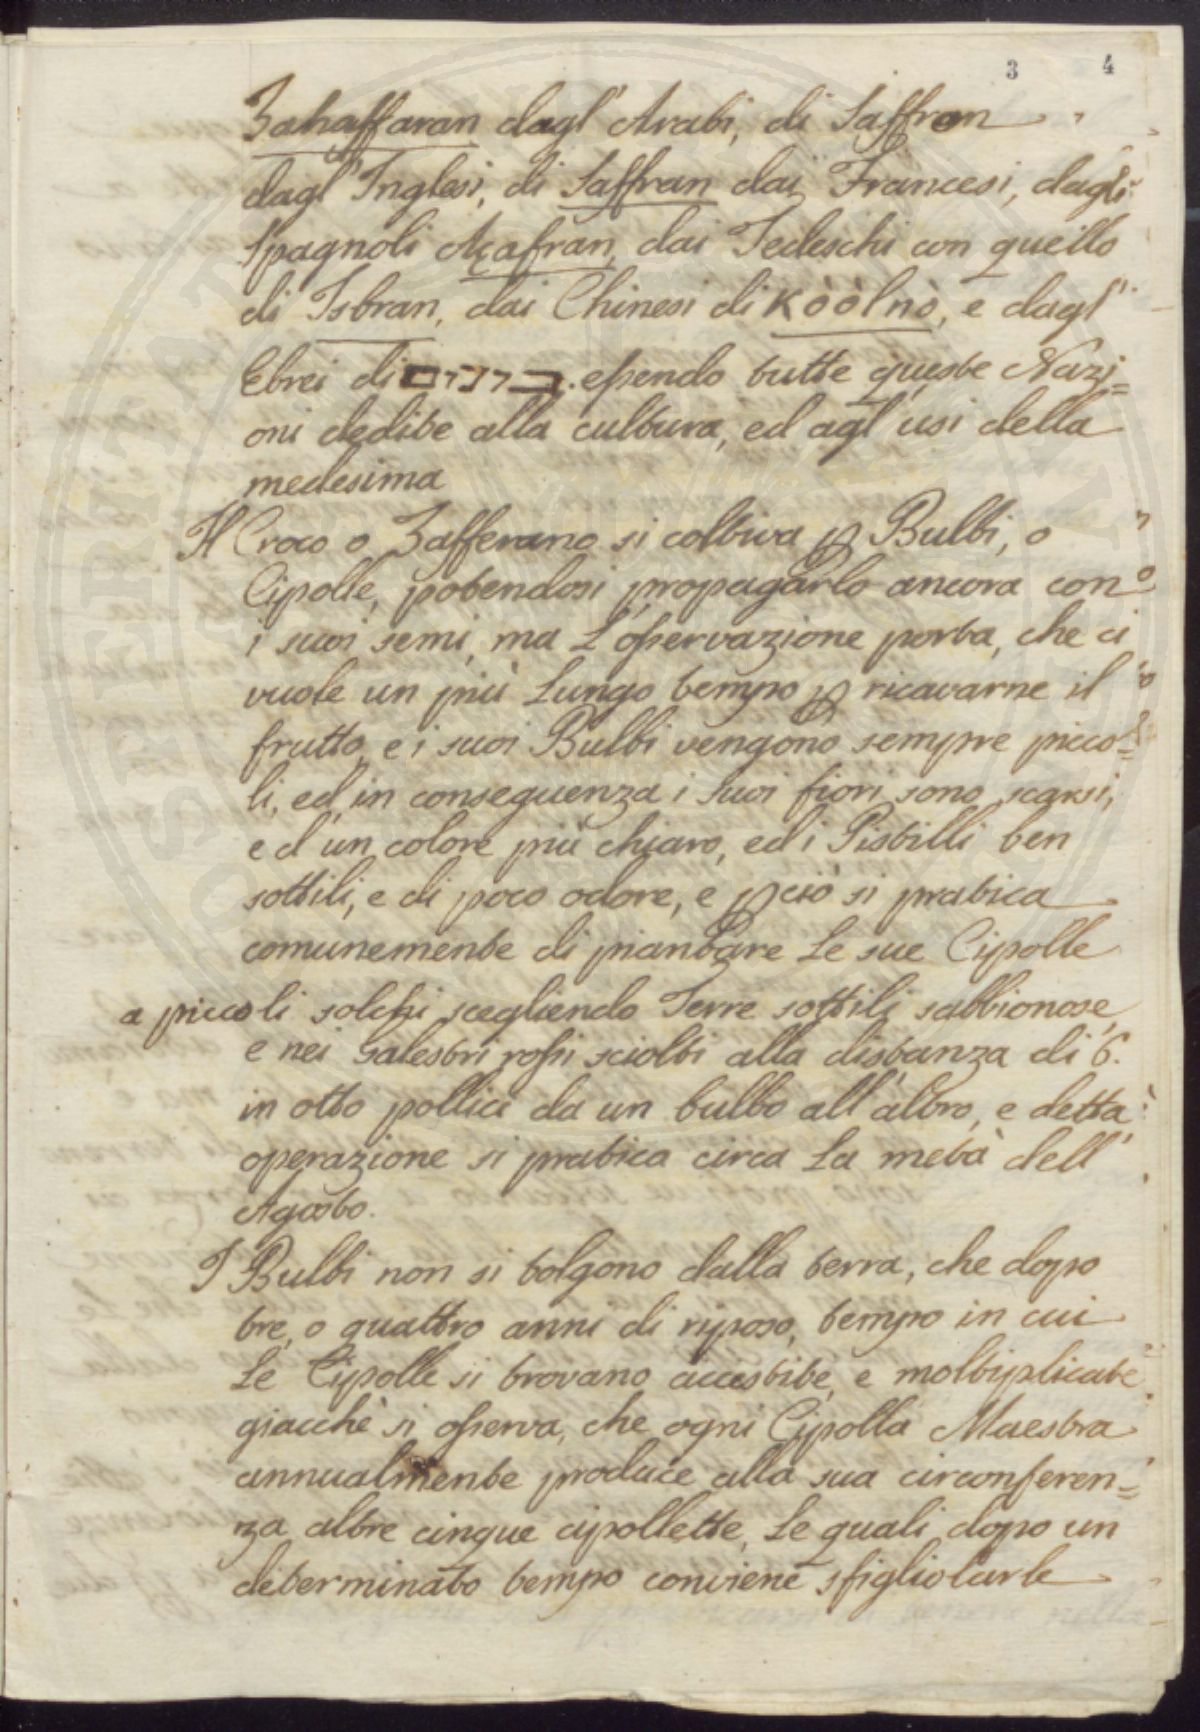 3 4
Zahaffaran dagl' Arabi, di Saffron
dagl' Inglesi, di Saffran dai Francesi, dagli
Spagnoli Açafran, dai Tedeschi con quello
di Isbran, dai Chinesi di Kòòlnò, e dagl'
Ebrei di essendo tutte queste Nazi=
oni dedite alla cultura, ed agl' usi della
medesima
Il Croco o Zafferano si coltiva ꝑ Bulbi, o
Cipolle, potendosi propagarlo ancora con
i suoi semi, ma l'osservazione porta, che ci
vuole un più lungo tempo ꝑ ricavarne il
frutto, e i suoi Bulbi vengono sempre picco=
li, ed in conseguenza i suoi fiori sono scarsi,
e d'un colore più chiaro, ed i Pistilli ben
sottili, e di poco odore, e ꝑciò si pratica
comunemente di piantare le sue Cipolle
a piccoli solchi scegliendo Terre sottili sabbionose,
e nei Galestri rossi sciolti alla distanza di 6.
in otto pollici da un bulbo all'altro, e detta
operazione si pratica circa la metà dell'
Agosto.
I Bulbi non si tolgono dalla terra, che dopo
tre, o quattro anni di riposo, tempo in cui
le Cipolle si trovano accestite, e moltiplicate
giacchè si osserva, che ogni Cipolla Maestra
annualmente produce alla sua circonferen=
za altre cinque cipollette, le quali dopo un
determinato tempo conviene sfigliolarle